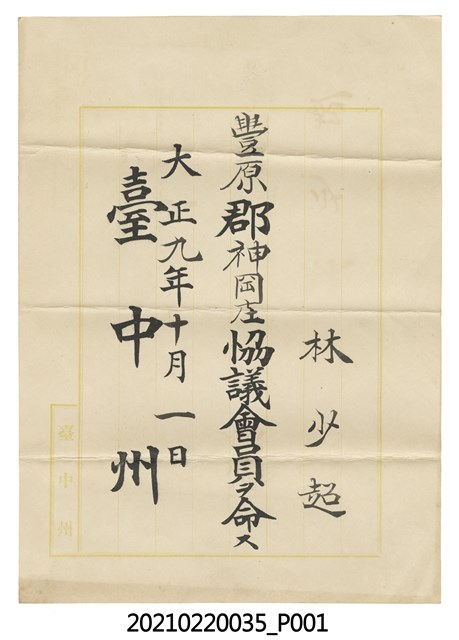 林少超
豐原郡神岡庄協議會員ヲ命ス
大正九年十月一日
臺中州
臺中州
20210220035_P001